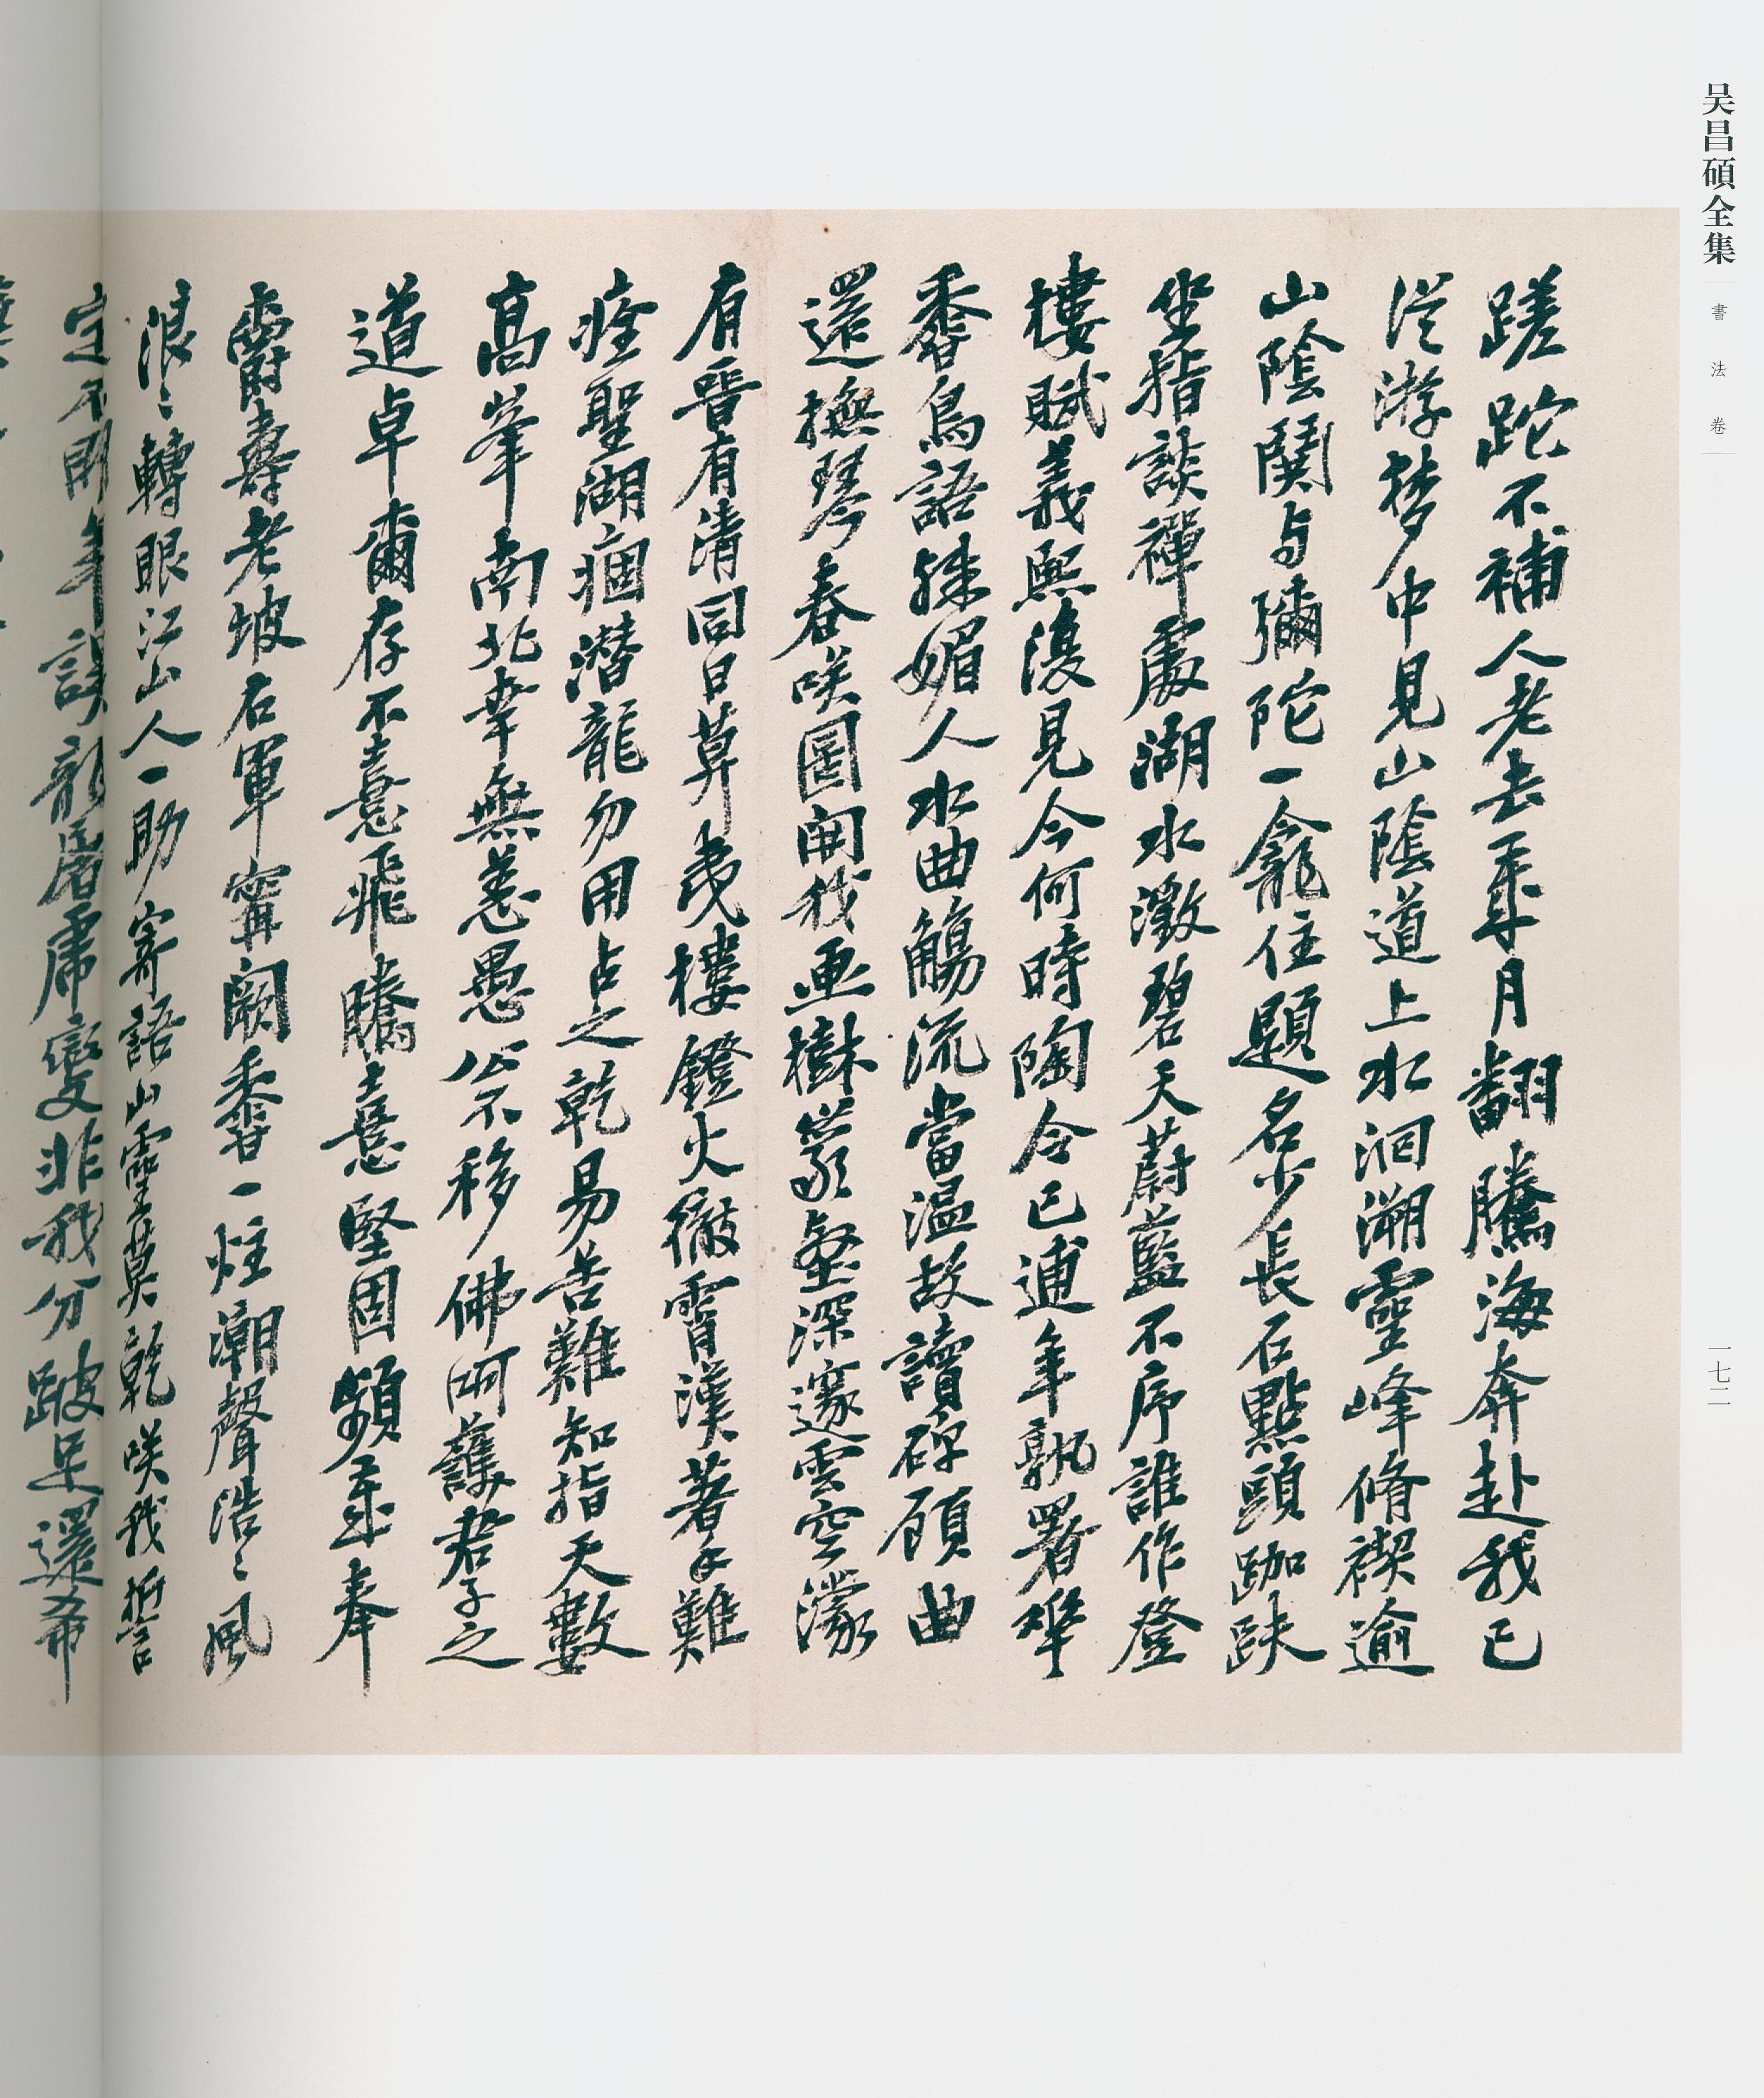 吴昌碩全集
書法卷
一七二
蹉跎不補人老去年年月翻騰海奔赴我已
從游夢中見山陰道上水洄溯靈峰脩禊逾
山陰鬨与彌陀一龕住題名少長石點頭跏趺
坐稽談禪處湖水澂碧天蔚藍不序誰作登
樓賦義熙復見今何時陶令已逋年孰署犖
黍鳥語殊媚人水曲觴流當温故讀碑顧曲
還撫琴春咲圖開我画樹蒙壑深邃雲空濛
有晋有清同日算曳樓鐙火徹霄漢著手難
痊聖湖痼潛龍勿用占之乾易苦難知指天數
高峯南北幸無恙愚公不移佛呵護君子之
道卓爾存不憙飛騰憙堅固頻年奉
爵壽老坡右軍寗闕黍一炷潮聲浩〻風
浪〻轉眼江山人一助寄語山靈莫乾咲我折言
定不開年誤龍屠席變非我分跛足還希